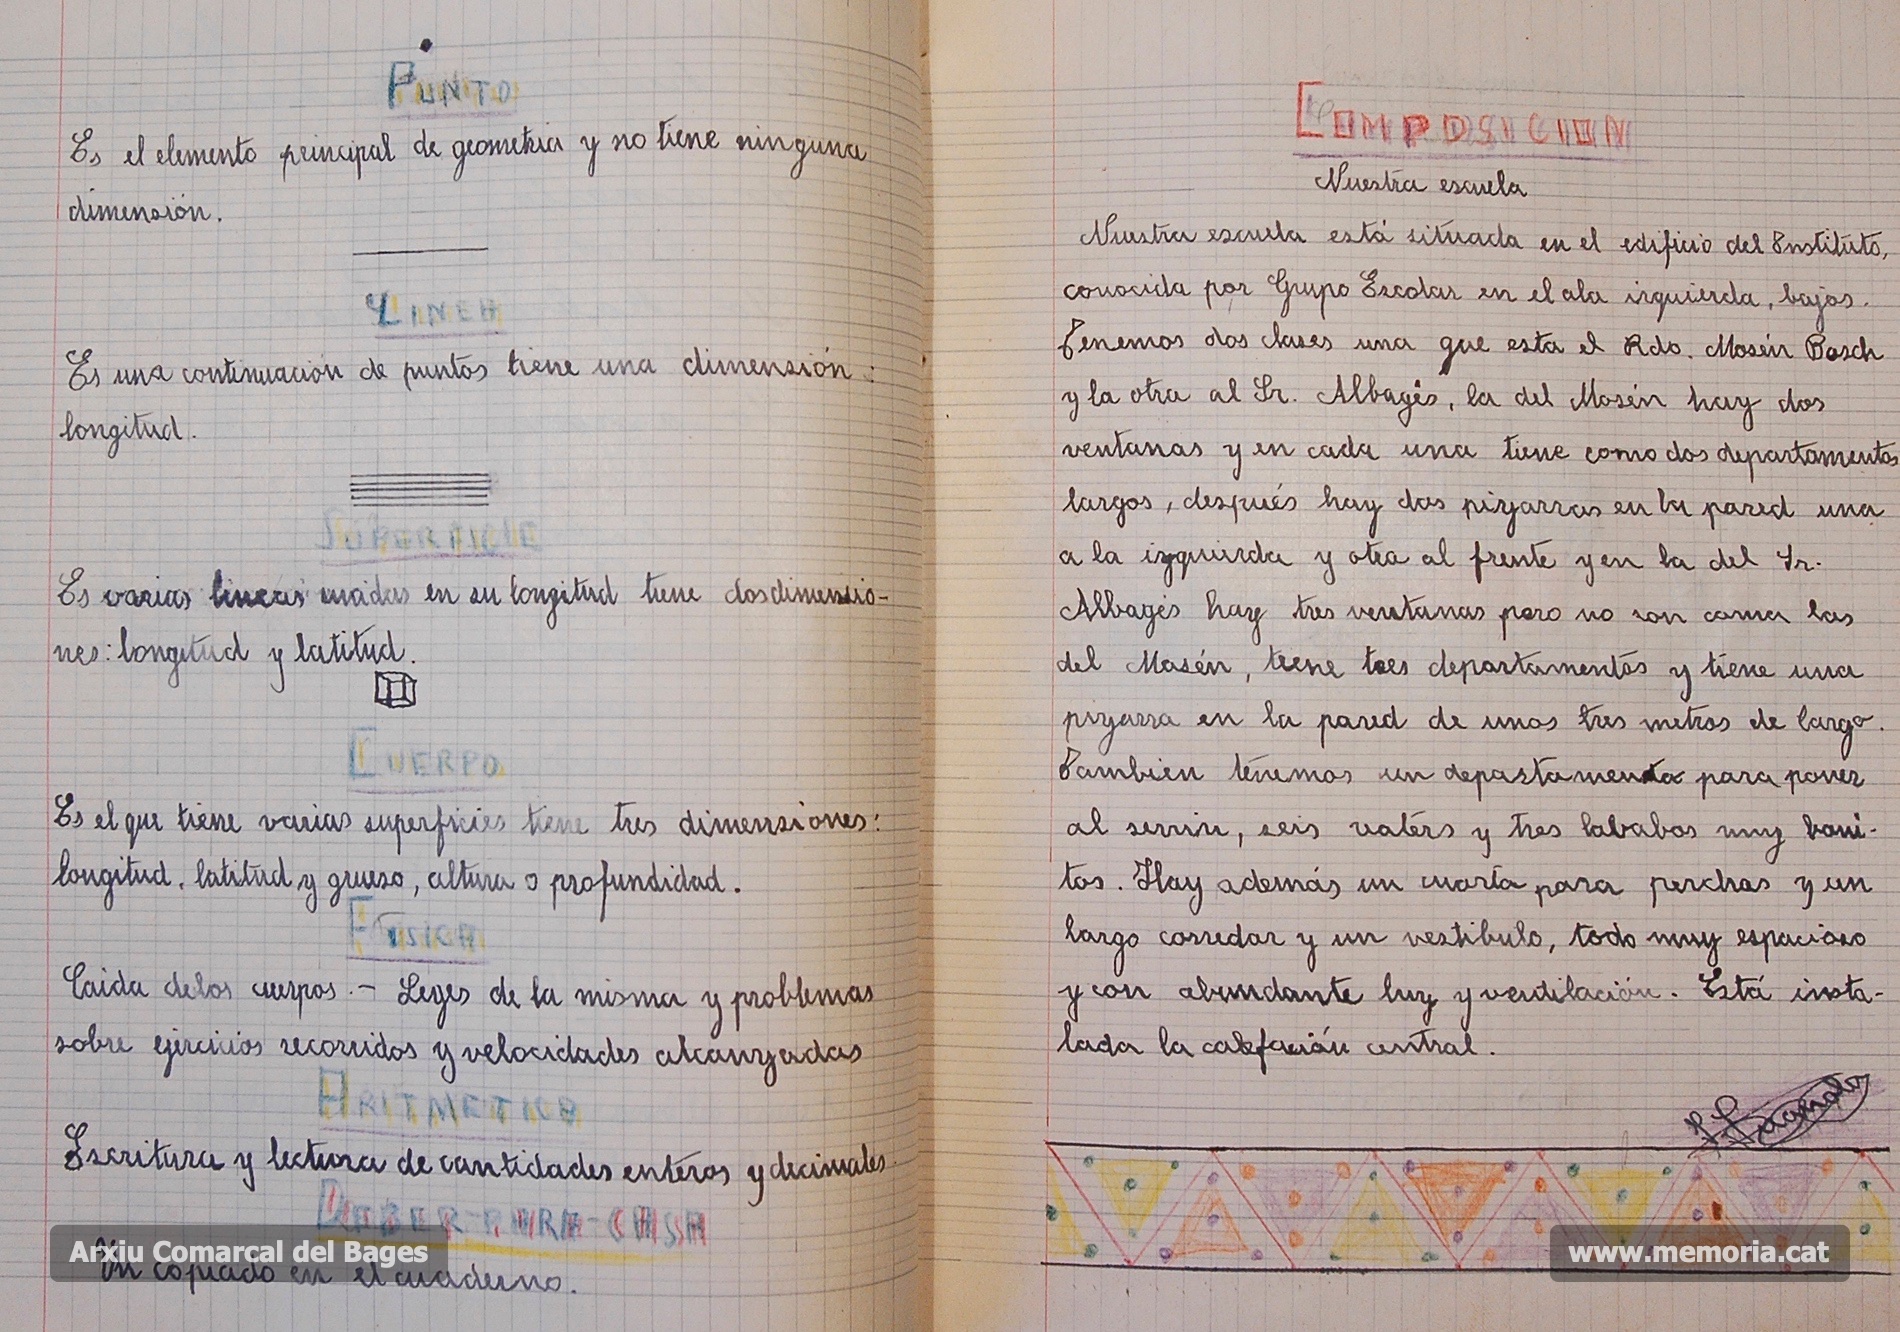 PUNTO
Es el elemento principal de geometria y no tiene ninguna
dimensión.
LINEA
Es una continuación de puntos tiene una dimensión:
longitud.
SUPERFICIE
Es varias lineas unidas en su longitud tiene dos dimensio-
nes: longitud y latitud.
CUERPO
Es el que tiene varias superficies tiene tres dimensiones:
longitud, latitud y grueso, altura o profundidad.
FISICA
Caida de los cuerpos.- Leyes de la misma y problemas
sobre ejercicios recorridos y velocidades alcanzadas
ARITMETICA
Escritura y lectura de cantidades enteros y decimales
DEBER-PARA-CASA
Un copiado en el cuaderno.
Arxiu Comarcal del Bages
COMPOSICION
Nuestra escuela
Nuestra escuela está situada en el edificio del Instituto,
conocida por Grupo Escolar en el ala izquierda, bajos.
Tenemos dos clases una que esta el Rdo. Mosén Bosch
y la otra al Sr. Albagés, la del Mosén hay dos
ventanas y en cada una tiene como dos departamentos
largos, después hay dos pizarras en la pared una
a la izquierda y otra al frente y en la del Sr.
Albagés hay tres ventanas pero no son coma las
del Mosén, tiene tres departamentos y tiene una
pizarra en la pared de unos tres metros de largo.
Tambien tenemos un departamento para poner
al serrin, seis vaters y tres lababos muy boni-
tos. Hay además un cuarto para perchas y un
largo corredor y un vestibulo, todo muy espacioso
y con abundante luz y ventilación. Está insta-
lada la calefación central.
www.memoria.cat